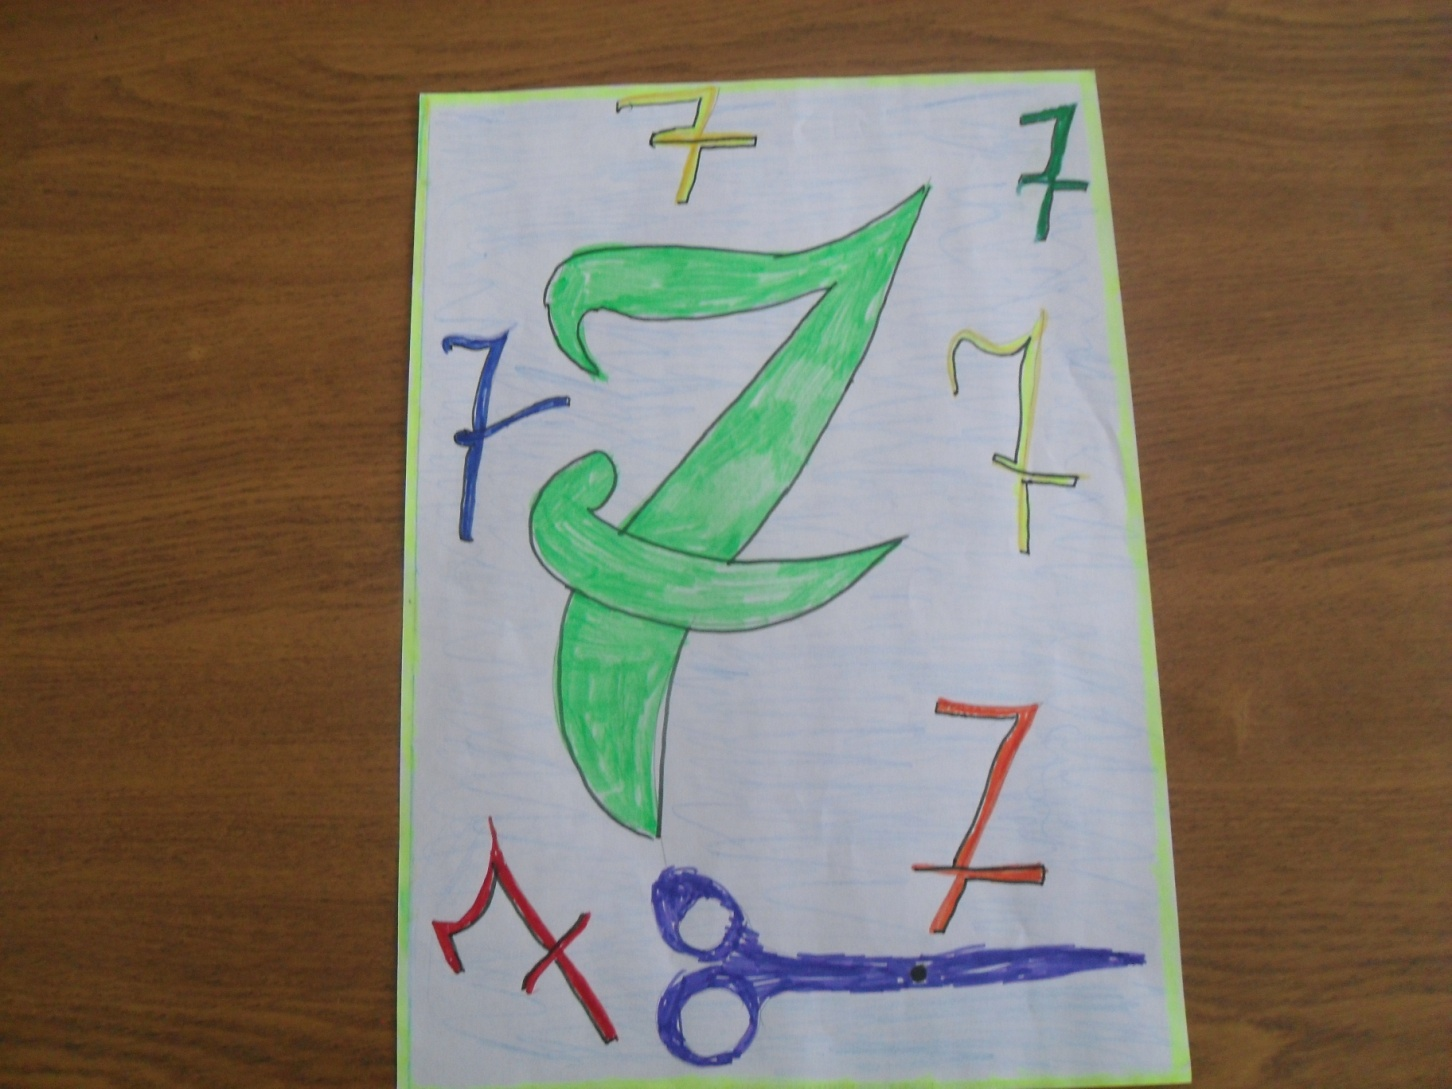 7
7
7
7
7
7
7